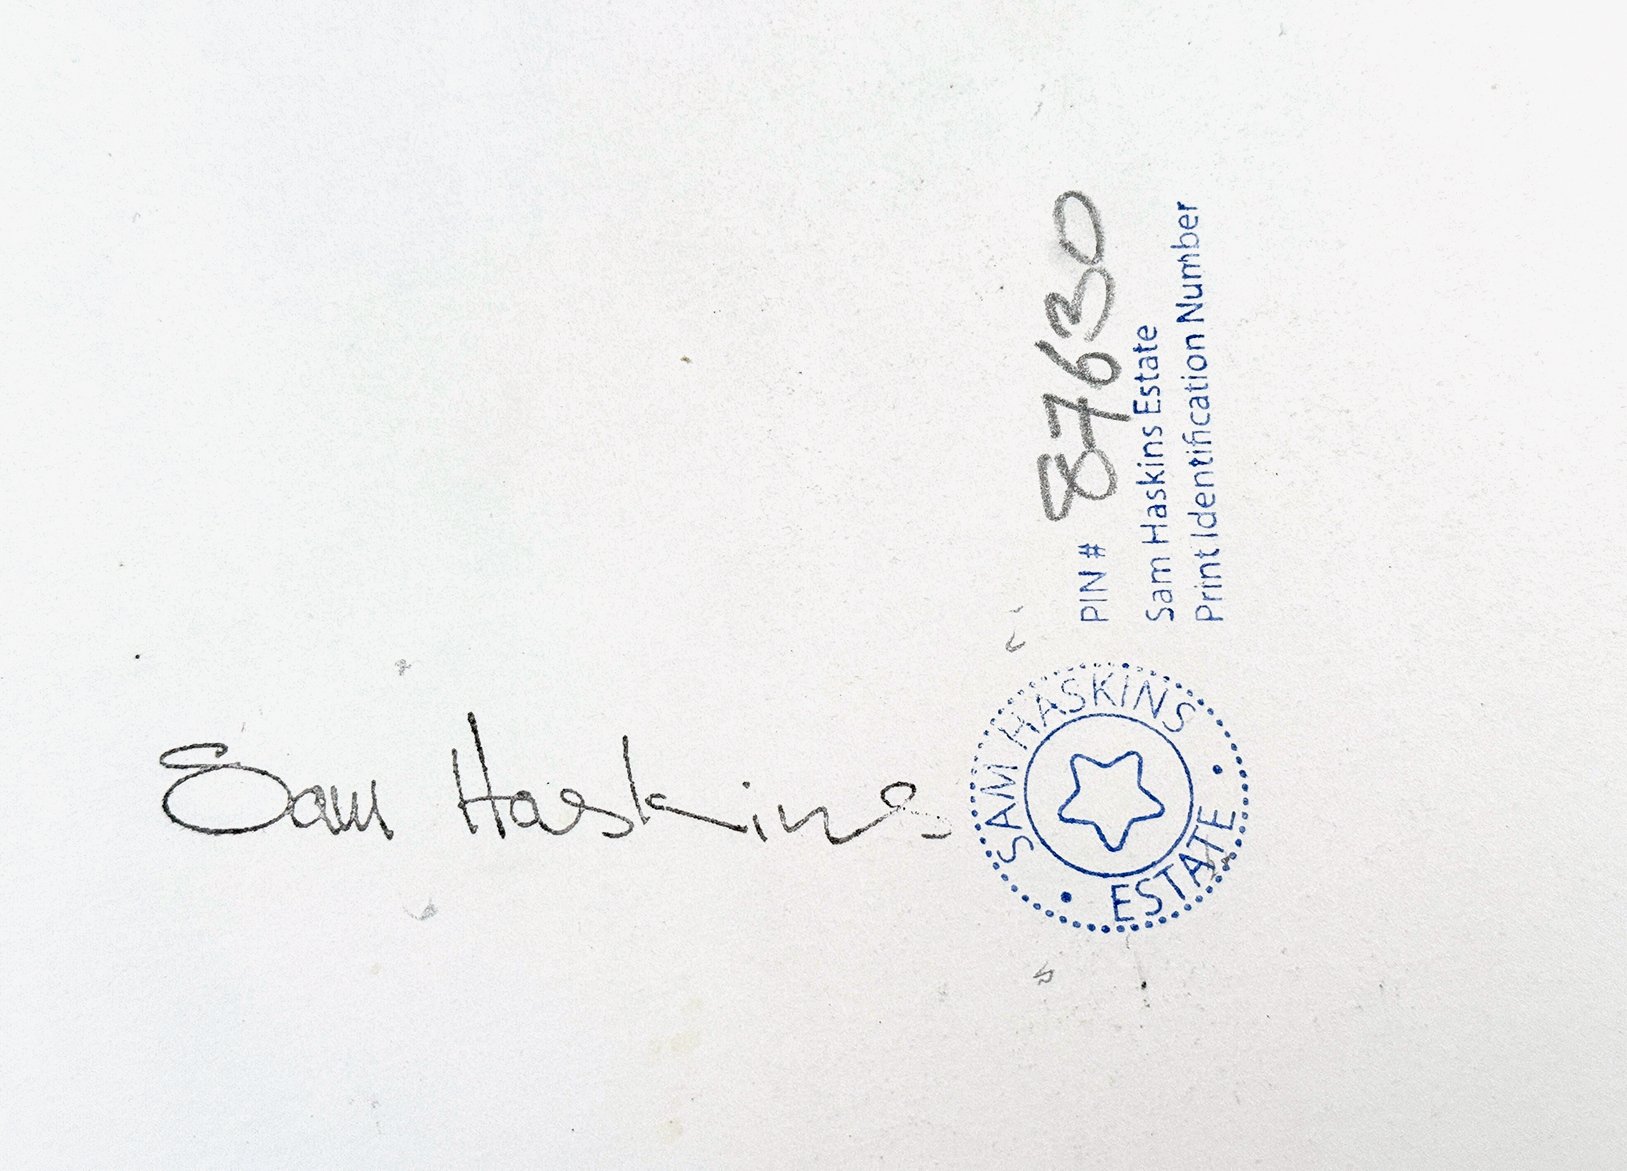 Sam Haskins
SAM HASKINS
ESTATE
PIN # 87630
Sam Haskins Estate
Print Identification Number